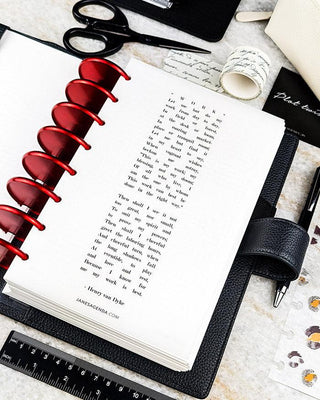 - W o r k -
Let me but do my
work from day to day,
In field or forest,
at the desk or loom,
In roaring market-
place or tranquil room;
Let me but find it
in my heart to say,
When vagrant wishes
beckon me astray,
"This is my work; my
blessing, not my doom;
Of all who live, I
am the one by whom
This work can best be
done in the right way."
Then shall I see it not
too great, nor small,
To suit my spirit and
to prove my powers;
Then shall I cheerful
greet the labouring hours,
And cheerful turn, when
the long shadows fall
At eventide, to play
and love and rest,
Because I know for
me my work is best.
- Henry van Dyke
JANESAGENDA.COM
Plot twist
1 2 3 4 5 6 7 8 9 10